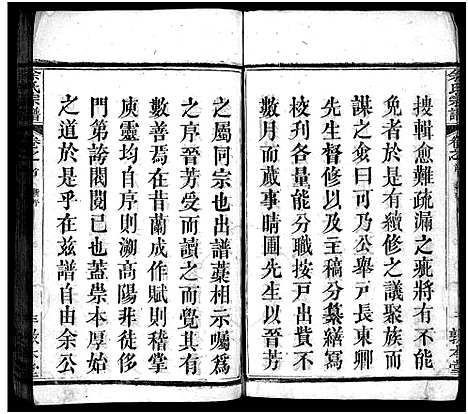 余氏宗譜
卷之首
敦本堂
搜輯愈難疏漏之疵將有不能
免者於是有續修之議聚族而
謀之僉曰可乃公舉戸長東卿
先生督修以及主稿分纂繕寫
校刋各量能分職按戸出貲不
數月而蕆事晴圃先生以芳
之屬同宗也出譜藁相示囑爲
之序晉芳受而讀之而覺其有
數善焉在昔蘭成作賦則稽掌
庾靈均自序則溯高陽非徒尙
門第誇閥閱已也蓋祟本厚始
之道於是乎在兹譜自由余公
余氏宗譜
卷之首
敦本堂